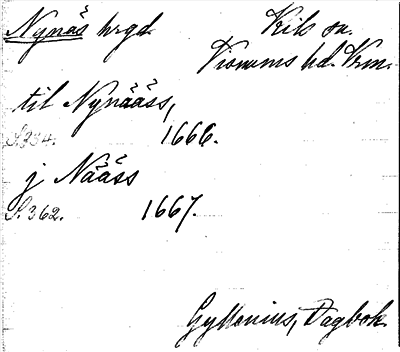 Nynäs hrgd. Kils sn.
Visnums hd. Vrm.
til Nynääss,
S. 334. 1666.
j Nääss
S. 362. 1667.
Gyllenius, Dagbok.